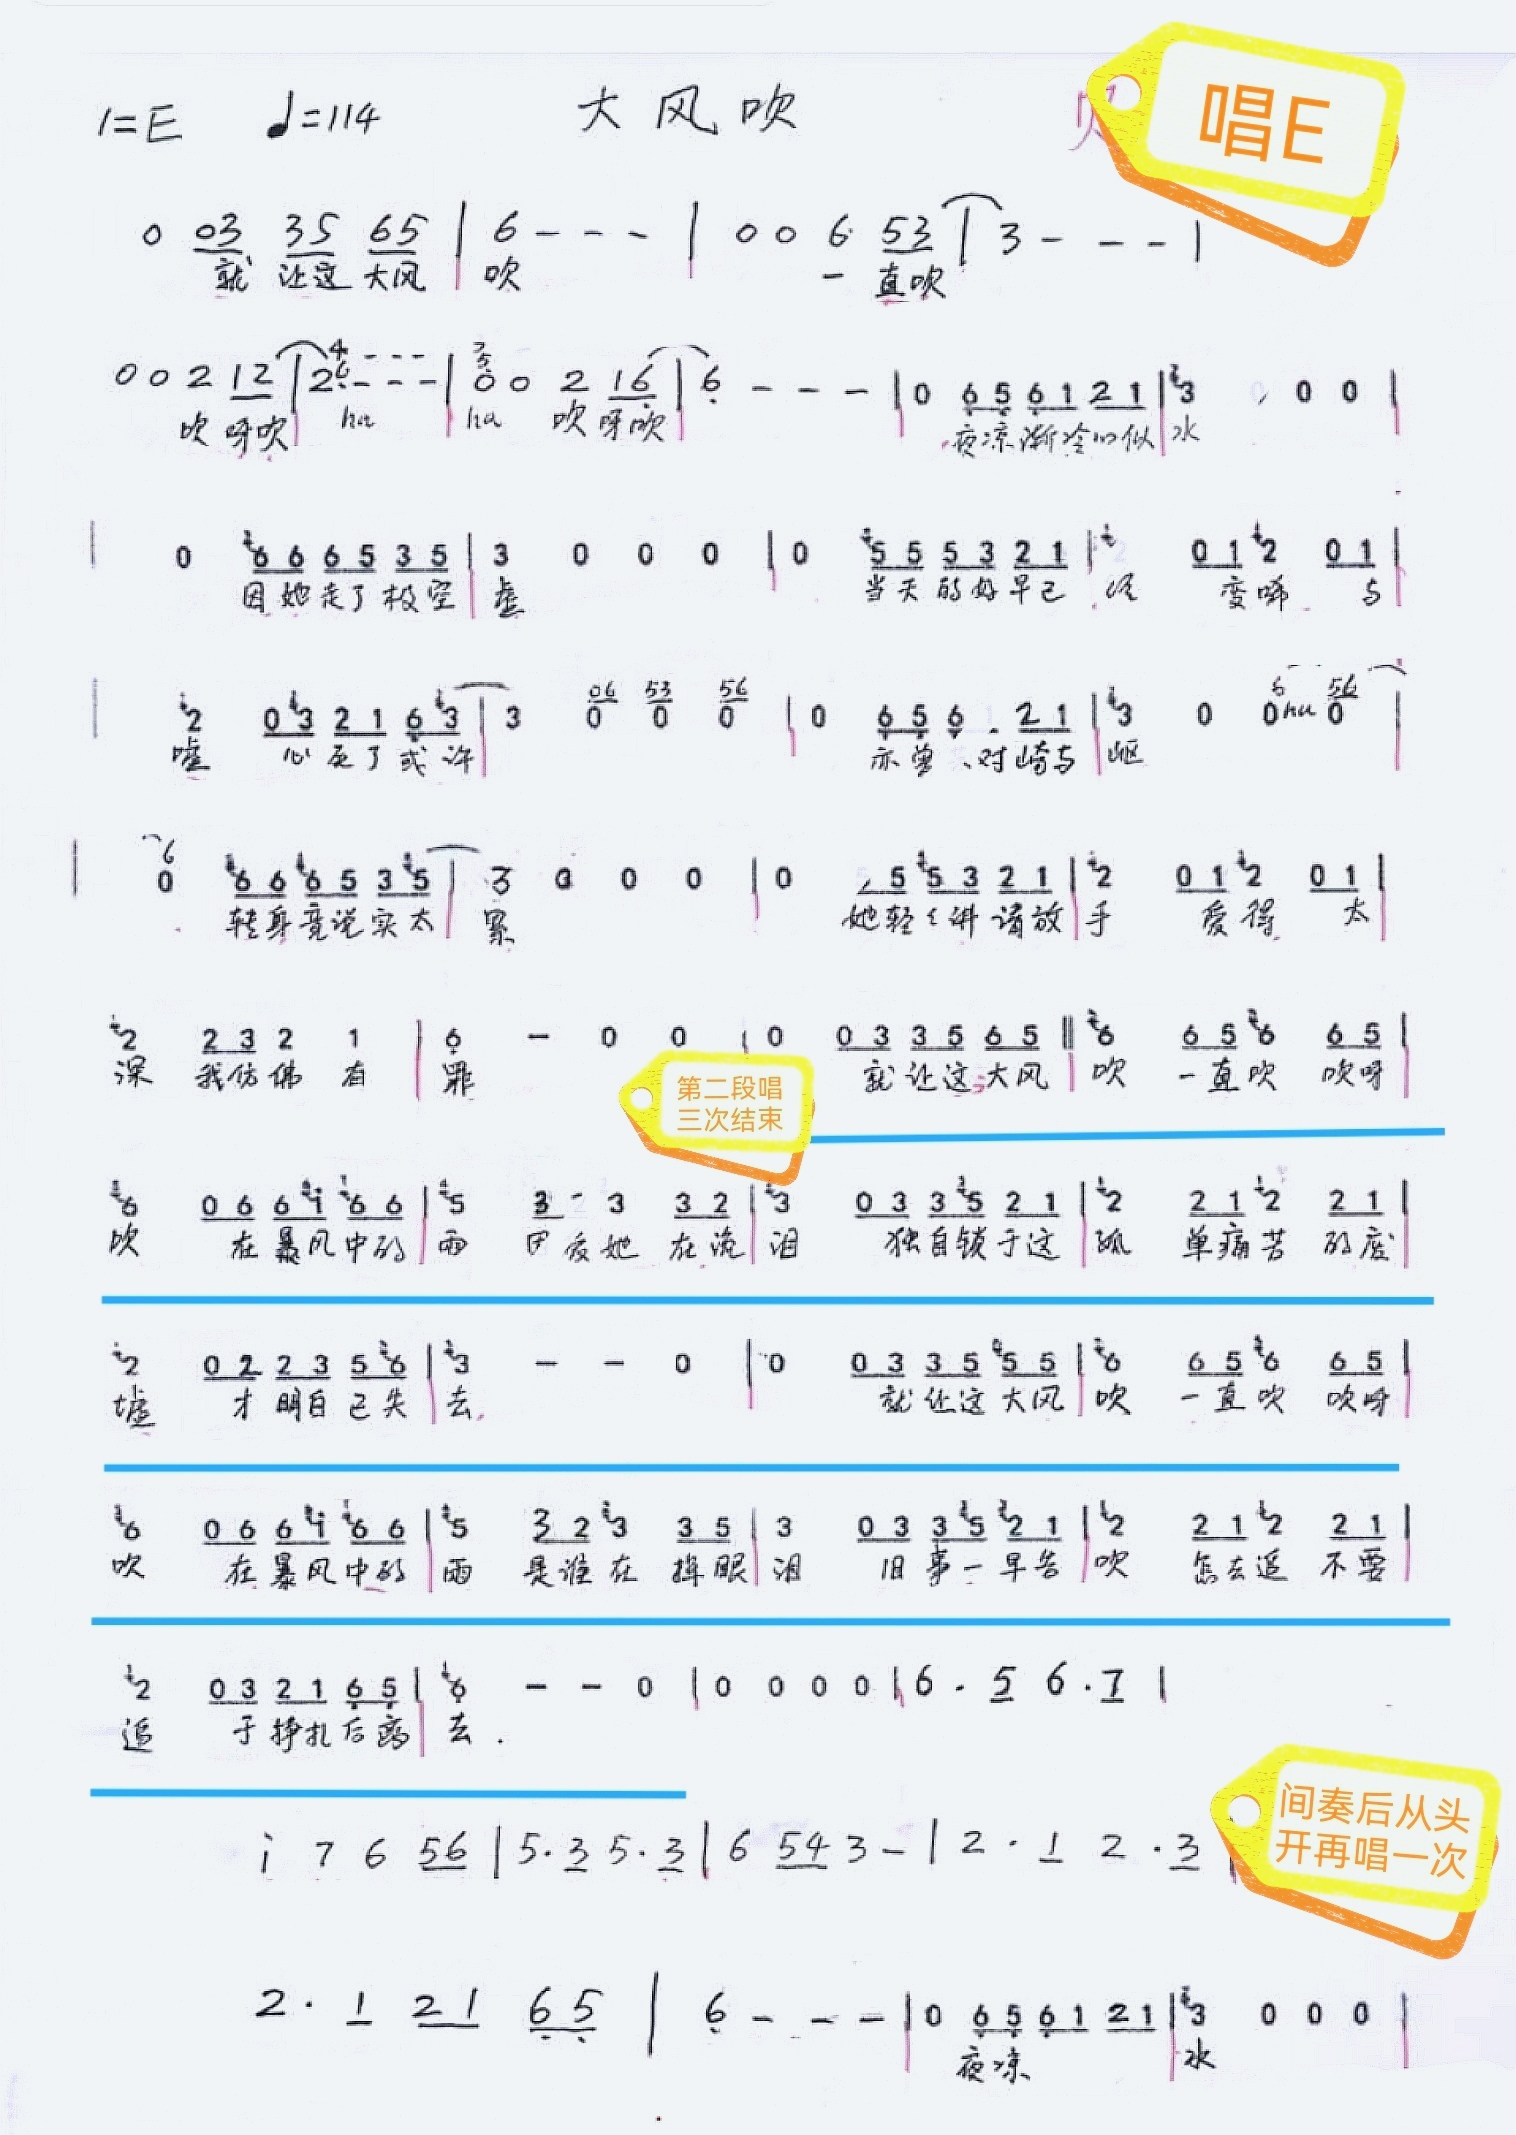 1=E ♩=114 大风吹 唱E
0 03 35 65 | 6 - - - | 0 0 6 53 | 3 - - - |
就 让这 大风 吹 一 直吹
4 - - - 3 5
0 0 2 12 | 2 6 - - - | 0 0 2 16 | 6 - - - | 0 65 61 21 | 3 0 0 |
吹 呀吹 ha ha 吹 呀吹 夜凉渐冷心似 水
| 0 66 65 35 | 3 0 0 0 | 0 55 53 21 | 01 2 01 |
因她走了极空 虚 当天的好早已 经 变唏 与
06 53 56 6 56
| 2 03 21 63 | 3 0 0 0 | 0 65 6. 21 | 3 0 0 ha 0 |
嘘 心死了或许 亦曾 对崎与 岖
6
| 0 66 65 35 | 3 0 0 0 | 0 5 53 21 | 2 01 2 01 |
转身竟说实太 累 她轻轻讲请放 手 爱得 太
2 23 2 1 | 6 - 0 0 | 0 03 35 65 ‖ 6 65 6 65 |
深 我仿佛 有 罪 就让这大风 吹 一直吹 吹呀
第二段唱
三次结束
6 06 61 66 | 5 3 - 3 32 | 3 03 35 21 | 2 21 2 21 |
吹 在暴风中的 雨 因爱她 在流 泪 独自锁于这 孤 单痛苦 的废
2 02 23 56 | 3 - - 0 | 0 03 35 55 | 6 65 6 65 |
墟 才明白已失 去 就让这大风 吹 一直吹 吹呀
6 06 61 66 | 5 32 3 35 | 3 03 35 21 | 2 21 2 21 |
吹 在暴风中的 雨 是谁在 挥眼 泪 旧事一早告 吹 怎去追 不要
2 03 21 65 | 6 - - 0 | 0 0 0 0 | 6 . 5 6 . 7 |
追 于挣扎后离 去 .
间奏后从头
开再唱一次
i 7 6 56 | 5 . 3 5 . 3 | 6 54 3 - | 2 . 1 2 . 3 |
2 . 1 21 65 | 6 - - - | 0 65 61 21 | 3 0 0 0 |
夜凉 水